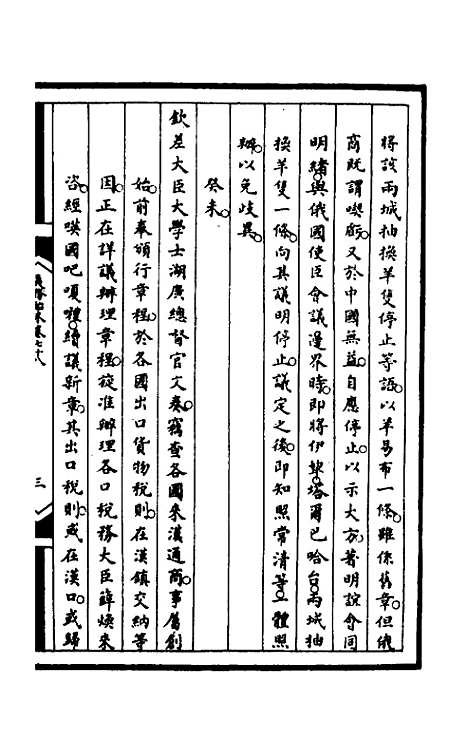 將該兩城抽換羊隻停止等語。以羊易布一條。雖係舊章。但俄
商既謂喫虧。又於中國無益。自應停止。以示大方。著明誼會同
明緒。與俄國使臣會議漫界時。即將伊犂。塔爾巴哈台。兩城抽
換羊隻一條。向其議明停止。議定之後。即知照常清等一體照
辦。以免歧異。
癸未。
欽差大臣大學士湖廣總督官文奏。竊查各國來漢通商。事屬創
始。前奉頒行章程。於各國出口貨物稅則。在漢鎮交納等
因。正在詳議辦理章程。旋准辦理各口稅務大臣薛煥來
咨。經嘆國吧嗄禮。續議新章。其出口稅則。或在漢口。或歸
三